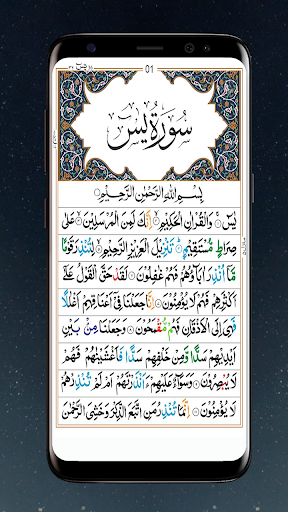 01
سُورَةُ يٰسٓ
بِسْمِ اللّٰهِ الرَّحْمٰنِ الرَّحِيْمِ
يٰسٓ وَالْقُرْاٰنِ الْحَكِيْمِ اِنَّكَ لَمِنَ الْمُرْسَلِيْنَ عَلٰى
صِرَاطٍ مُّسْتَقِيْمٍ تَنْزِيْلَ الْعَزِيْزِ الرَّحِيْمِ لِتُنْذِرَ قَوْمًا
مَّاۤ اُنْذِرَ اٰبَآؤُهُمْ فَهُمْ غٰفِلُوْنَ لَقَدْ حَقَّ الْقَوْلُ عَلٰۤى
اَكْثَرِهِمْ فَهُمْ لَا يُؤْمِنُوْنَ اِنَّا جَعَلْنَا فِيْۤ اَعْنَاقِهِمْ اَغْلٰلًا
فَهِيَ اِلَى الْاَذْقَانِ فَهُمْ مُّقْمَحُوْنَ وَجَعَلْنَا مِنْۢ بَيْنِ
اَيْدِيْهِمْ سَدًّا وَّمِنْ خَلْفِهِمْ سَدًّا فَاَغْشَيْنٰهُمْ فَهُمْ
لَا يُبْصِرُوْنَ وَسَوَآءٌ عَلَيْهِمْ ءَاَنْذَرْتَهُمْ اَمْ لَمْ تُنْذِرْهُمْ
لَا يُؤْمِنُوْنَ اِنَّمَا تُنْذِرُ مَنِ اتَّبَعَ الذِّكْرَ وَخَشِيَ الرَّحْمٰنَ